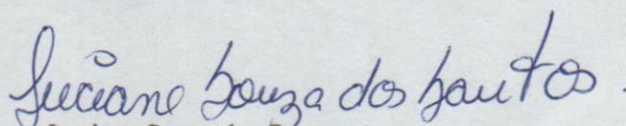 Luciane Souza dos Santos.